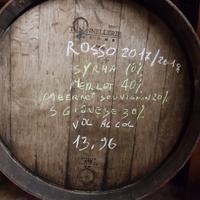 TONNELLERIE
ROSSO 2017/2018
SYRHA 10%
MERLOT 40%
CABERNET SOUVIGNON 20%
SGIOVESE 30%
VOL ALCOL
13,96